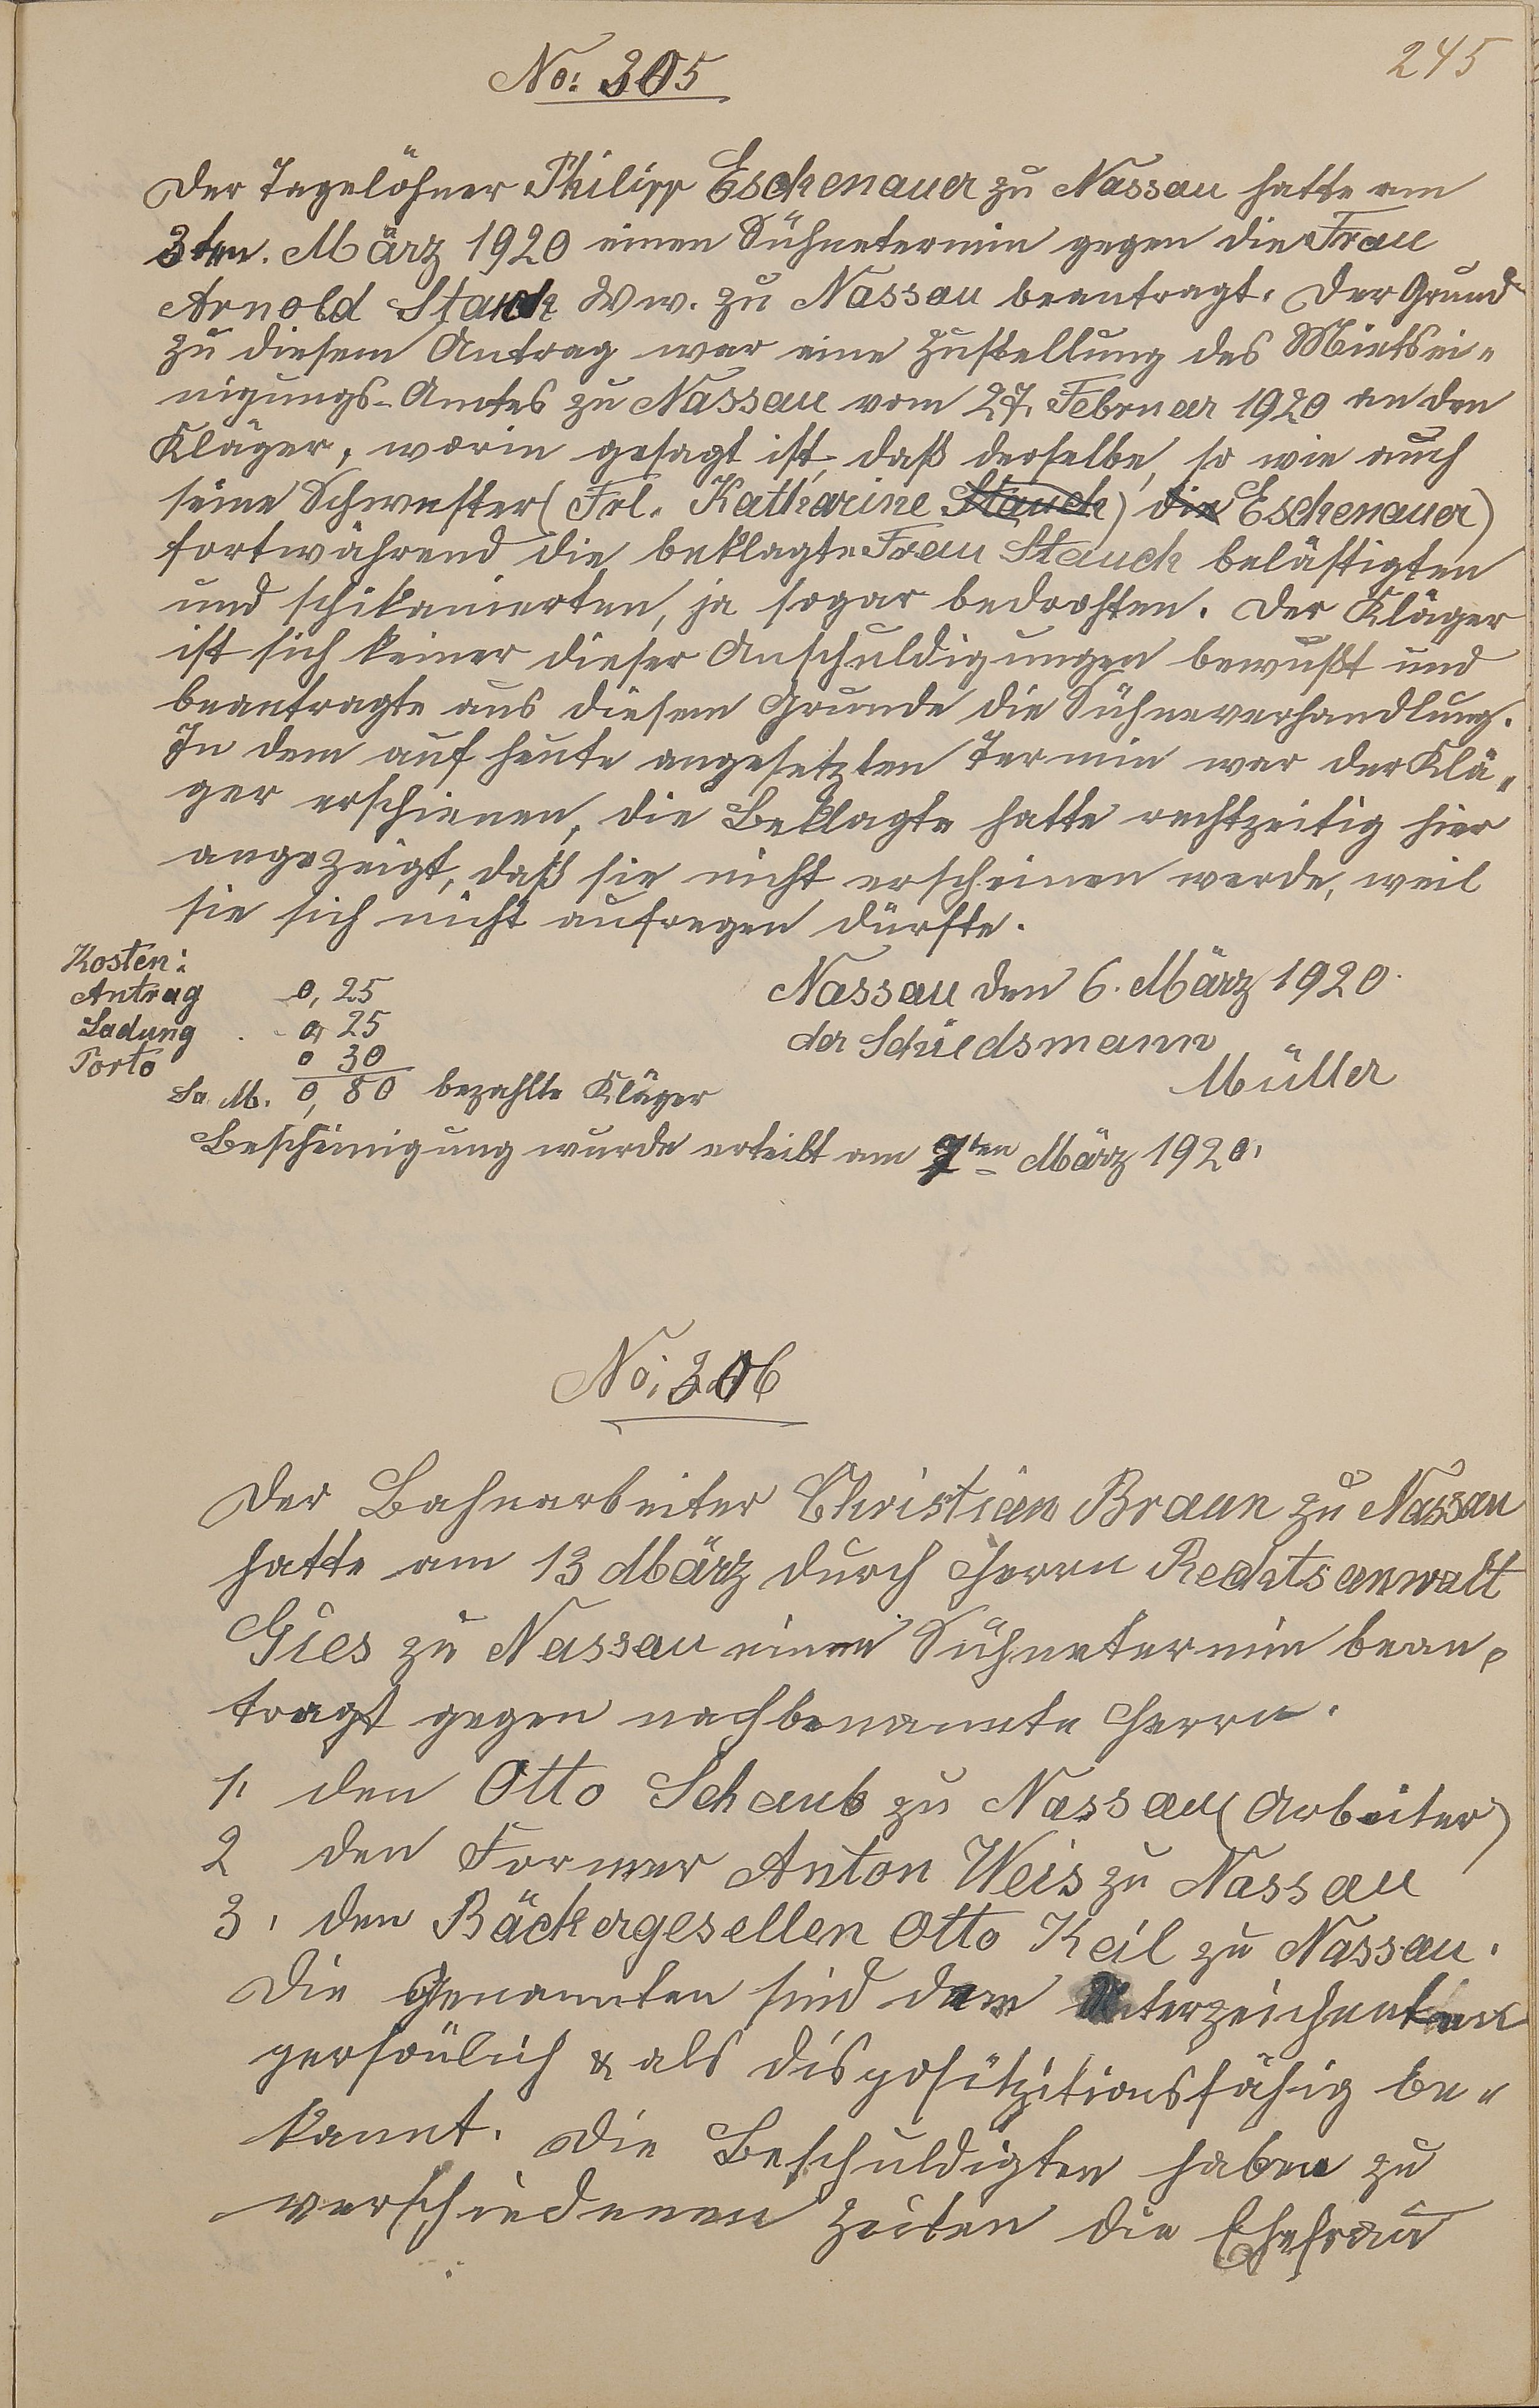 245
No: 305
Der Tagelöhner Philipp Eschenauer zu Nassau hatte am
3ten. März 1920 einen Sühnetermin gegen die Frau
Arnold Stauch Ww. zu Nassau beantragt. Der Grund
zu diesem Antrag war eine Zustellung des Mietsei-
nigungs-Amtes zu Nassau vom 27. Februar 1920 an den
Kläger, worin gesagt ist, daß derselbe, so wie auch
seine Schwester (Frl. Katharine Stauch) die Eschenauer)
fortwährend die beklagte Frau Stauch belästigten
und schikanierten, ja sogar bedrohten. Der Kläger
ist sich keiner dieser Anschuldigungen bewußt und
beantragte aus diesem Grunde die Sühneverhandlung.
In dem auf heute angesetzten Termin war der Klä-
ger erschienen, die Beklagte hatte rechtzeitig hier
angezeigt, daß sie nicht erscheinen werde, weil
sie sich nicht aufregen dürfte.
Kosten:
Antrag 0,25
Ladung . 0,25
Porto 0 30
Sa. M. 0,80 bezahlte Kläger
Nassau den 6. März 1920.
der Schiedsmann
Müller
Bescheinigung wurde erteilt am 7ten März 1920.
No: 306
Der Bahnarbeiter Christian Braun zu Nassau
hatte am 13 März durch Herrn Rechtsanwalt
Gies zu Nassau einen Sühnetermin bean-
tragt gegen nachbenannte Herrn.
1. den Otto Schaub zu Nassau (Arbeiter)
2 den Former Anton Weis zu Nassau
3. den Bäckergesellen Otto Keil zu Nassau.
Die Genannten sind dem Unterzeichneten
persönlich & als disposizitionsfähig be-
kannt. Die Beschuldigten haben zu
verschiedenen Zeiten die Ehefrau